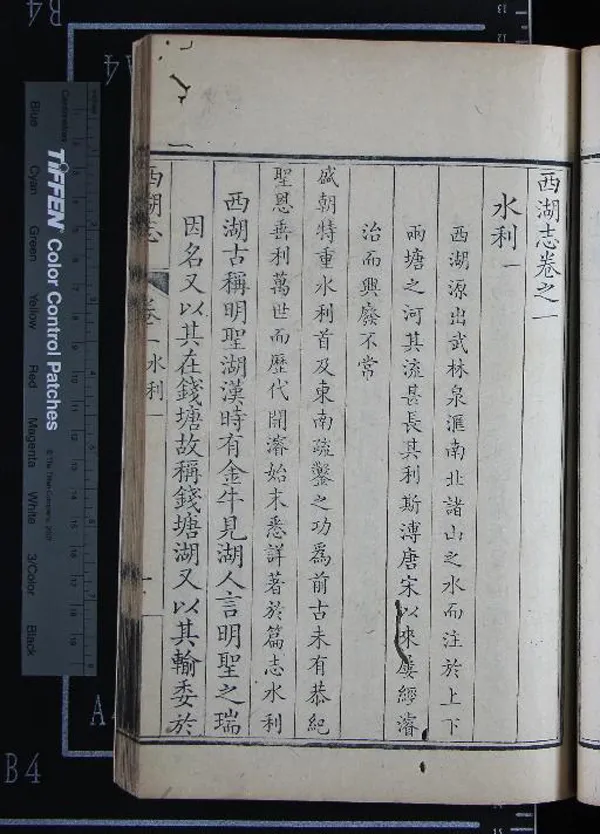 西湖志卷之一
水利一
西湖源出武林泉滙南北諸山之水而注於上下
兩塘之河其流甚長其利斯溥唐宋以來屢經濬
治而興廢不常
盛朝特重水利首及東南疏鑿之功為前古未有恭紀
聖恩善利萬世而歷代開濬始末悉詳著於篇志水利
西湖古稱明聖湖漢時有金牛見湖人言明聖之瑞
因名又以其在錢塘故稱錢塘湖又以其輸委於
西湖志
卷一 水利一
一
B4
A4
B4
TIFFEN Color Control Patches
© The Tiffen Company, 2007
Centimetres
Blue
Cyan
Green
Yellow
Red
Magenta
White
3/Color
Black